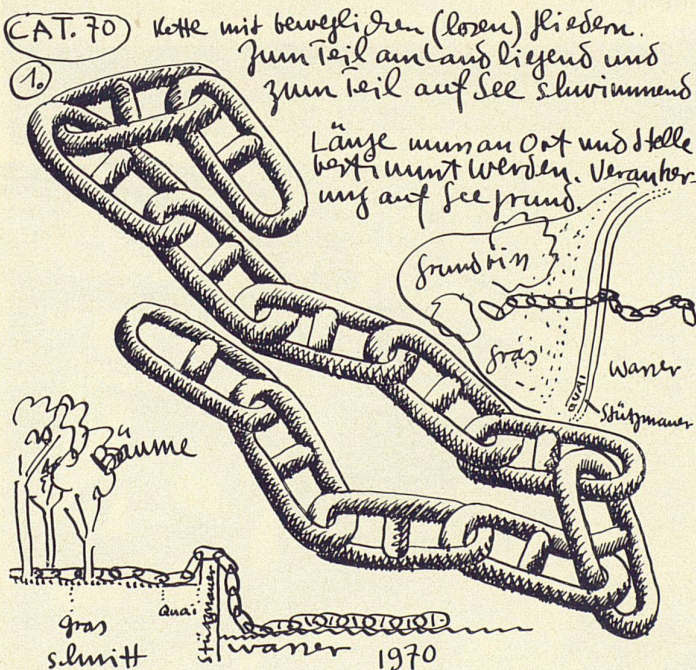 CAT. 70
1.
Kette mit beweglichen (losen) Gliedern.
Zum Teil am Land liegend und
zum Teil auf See schwimmend
Länge muss an Ort und Stelle
bestimmt werden. Veranker-
ung auf Seegrund.
Grundriss
Gras
Wasser
QUAI
Stützmauer
Bäume
Quai
Stützmauer
Gras
Schnitt
Wasser
1970